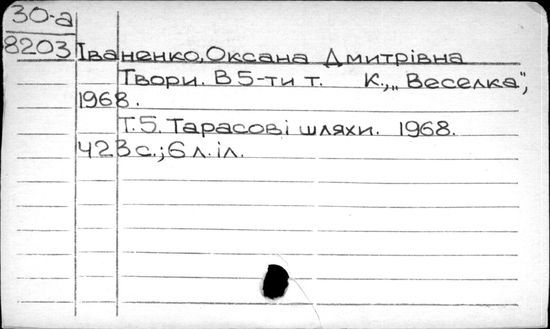 30-а
8203
Іваненко, Оксана Дмитрівна
Твори. В 5-ти т. К., „Веселка",
1968.
Т.5. Тарасові шляхи. 1968.
423 с.; 6 л. іл.